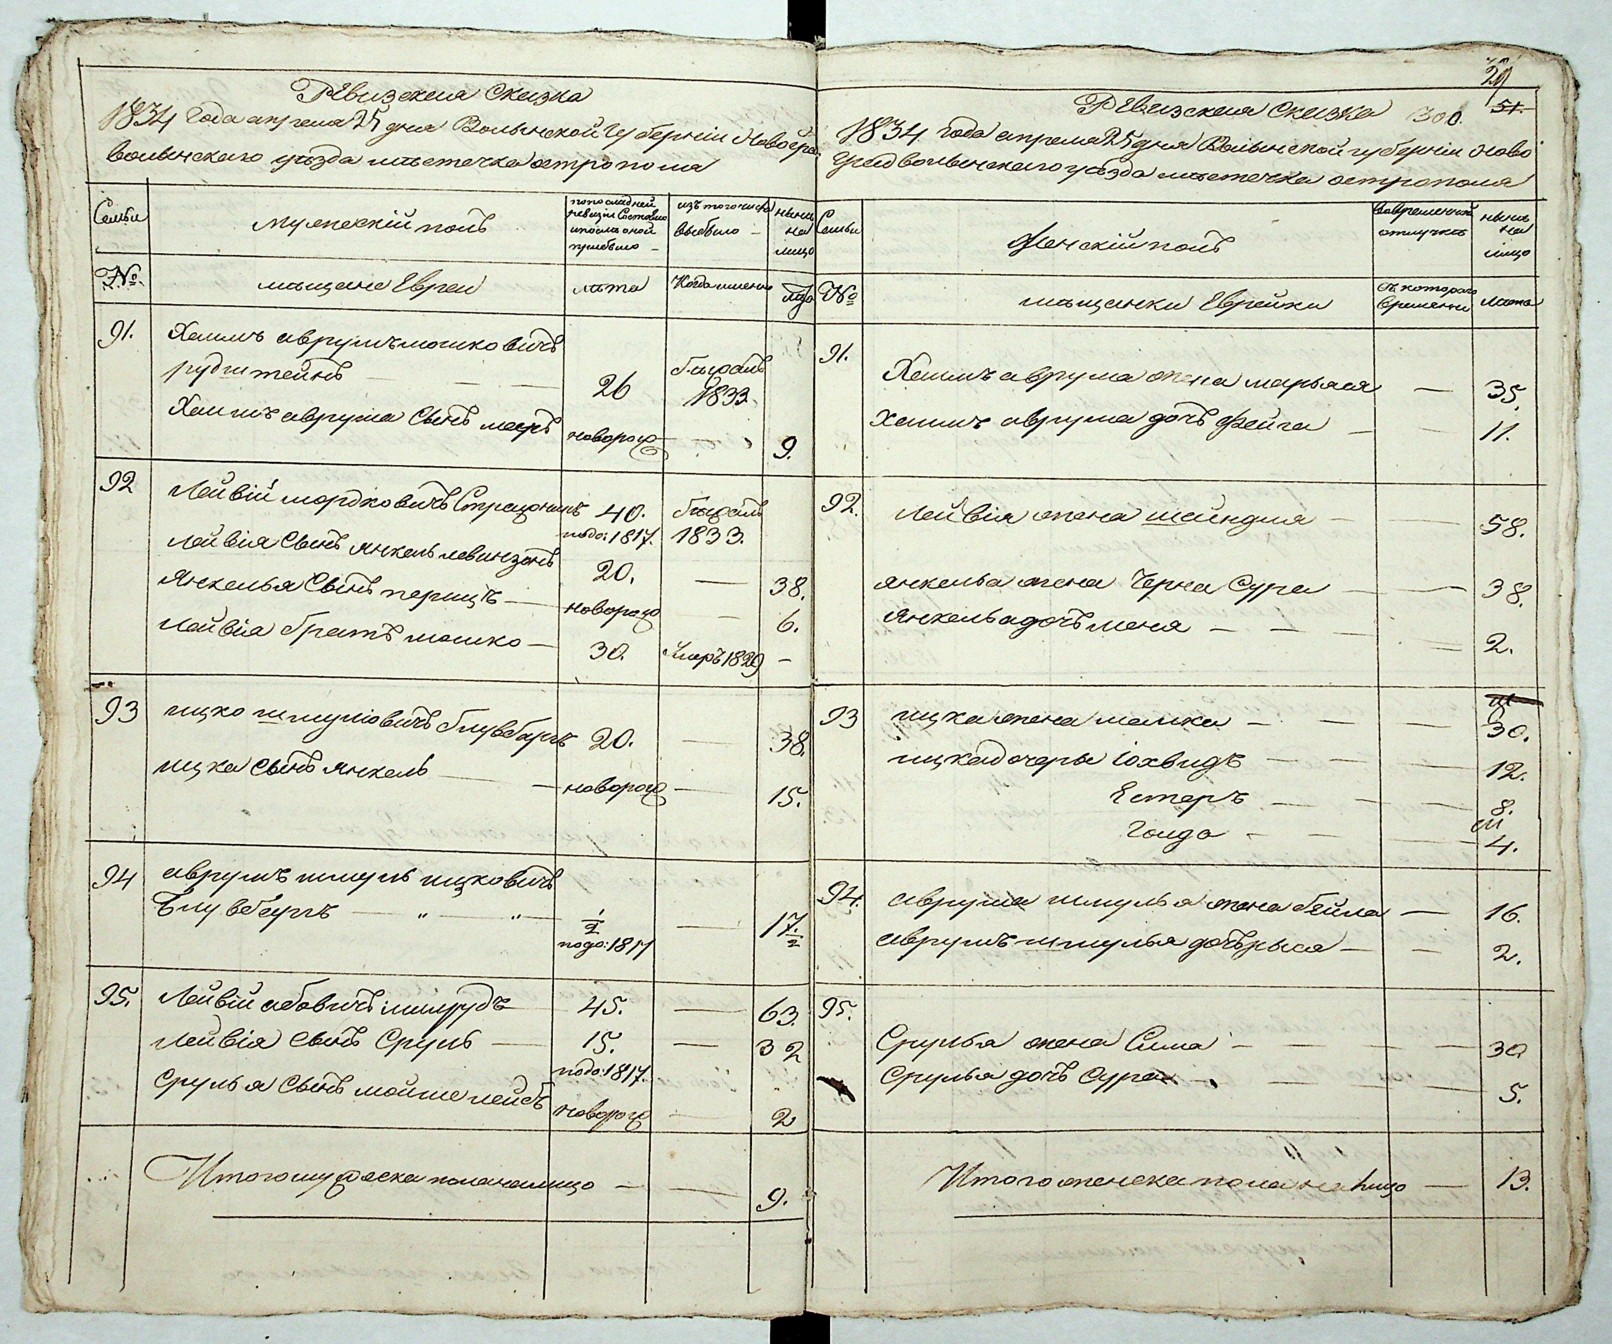 Ревизская Сказка
1834 года апреля 25 дня Волынской Губерніи Новогра
волынскаго уѣзда мѣстечка острополя
Семьи
мужескій полъ
по последней ревизіи Состояло и после оной прибыло
изъ того числа выбыло
нынѣ на лицо
№
мѣщане Евреи
лѣта
Когда именно
лѣта
91.
Хаимъ аврумъ мошковичъ
рудштейнъ
26
1833
Хаимъ аврума Сынъ мееръ
новорож
9.
92
Лейвій мордковичъ
40.
1833.
подо: 1817.
Лейвія Сынъ янкель левинзонъ
20.
38.
Янкелья Сынъ перицъ
новорож
6.
Лейвія братъ мошко
30.
Умеръ 1829
93
ицко шмуліовичъ блувбергъ
20.
38.
ицка Сынъ янкель
новорож
15.
94
аврумъ шмуль ицковичъ
блувбергъ
1/2
17 1/2
подо: 1817
95.
Лейвій абовичъ
45.
63.
Лейвія Сынъ Сруль
15.
32
подо: 1817.
Срулья Сынъ мойше лейбъ
новорож
2
Итого мужеска пола на лицо
9.
29
Ревизская Сказка
300.
51.
1834 года апреля 25 дня Волынской губерніи ново
градволынскаго уѣзда мѣстечка острополя
Семьи
Женскій полъ
Во временной отлучке
нынѣ на лицо
№
мѣщанки Еврейки
съ котораго времени
лѣта
91.
Хаимъ аврума жена марьяся
35.
Хаимъ аврума дочь фейга
11.
92.
Лейвія жена шейндля
58.
янкелья жена Черна Сура
38.
янкелья дочь меня
2.
93
ицка жена малка
30.
ицка дочеры іохвидъ
12.
Естеръ
8.
Голда
4.
94.
аврума шмулья жена бейла
16.
аврумъ шмулья дочь рыся
2.
95.
Срулья жена Сима
30
Срулья дочь Сура
5.
Итого женска пола на лицо
13.